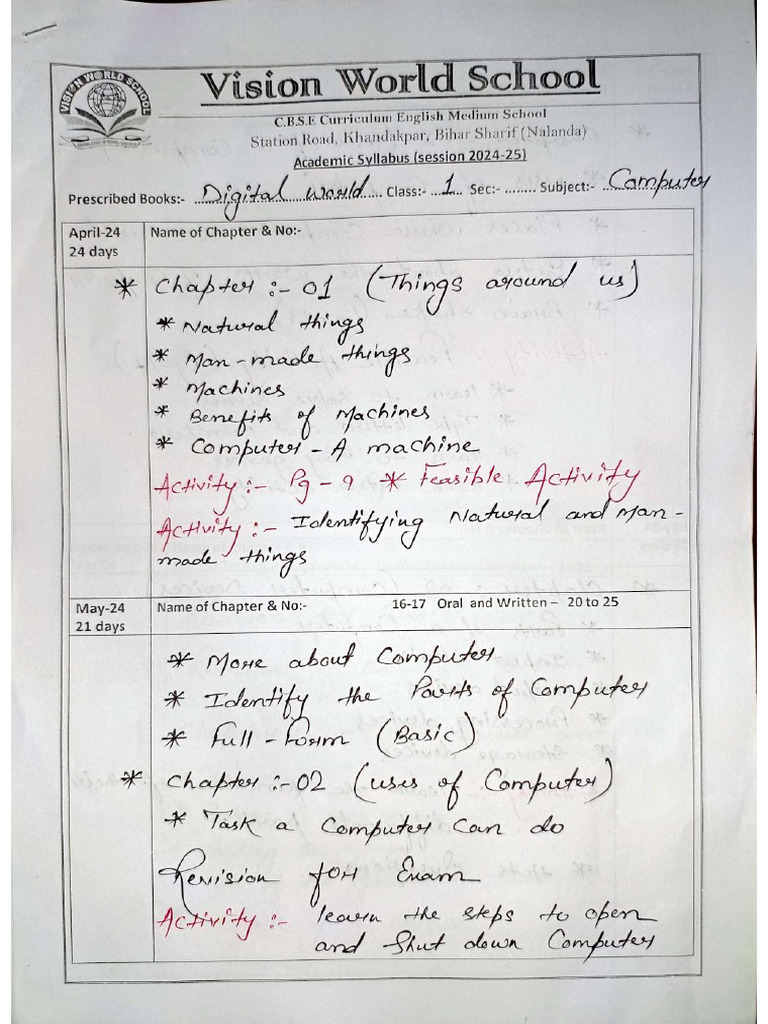 VISION WORLD SCHOOL
Vision World School
C.B.S.E Curriculum English Medium School
Station Road, Khandakpar, Bihar Sharif (Nalanda)
Academic Syllabus (session 2024-25)
Prescribed Books:- Digital world Class:- 1 Sec:- ........ Subject:- Computer
April-24 Name of Chapter & No:-
24 days
* Chapter :- 01 (Things around us)
* Natural things
* Man-made things
* Machines
* Benefits of Machines
* Computer - A machine
Activity :- Pg - 9 * Feasible Activity
Activity :- Identifying Natural and Man-
made things
May-24 Name of Chapter & No:- 16-17 Oral and Written – 20 to 25
21 days
* More about Computer
* Identify the Parts of Computer
* Full-Form (Basic)
* Chapter :- 02 (uses of Computer)
* Task a Computer Can do
Revision for Exam
Activity :- learn the steps to open
and Shut down Computer